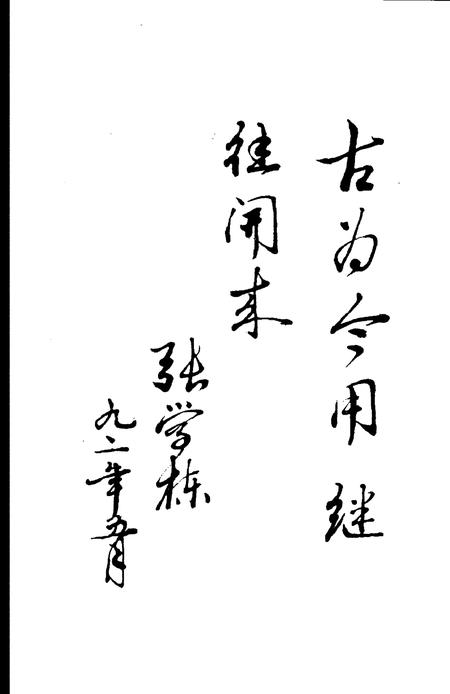 古为今用继
往开来
张学栋
九二年五月